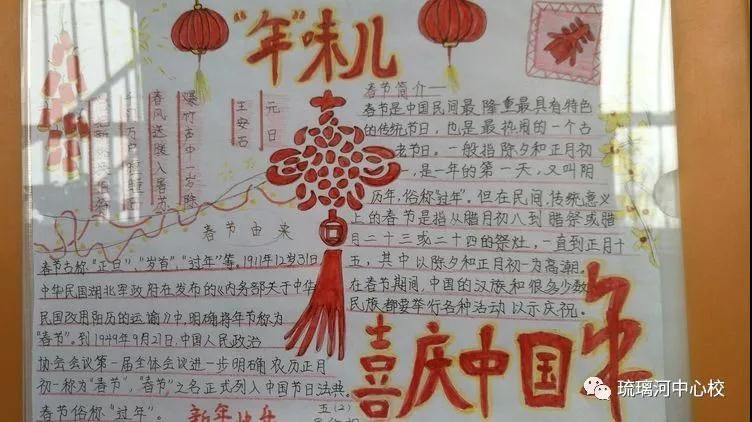 "年"味儿
元日
王安石
爆竹声中一岁除
春风送暖入屠苏
春节简介一
春节是中国民间最隆重最具有特色
的传统节日,也是最热闹的一个古
老节日。一般指除夕和正月初
一,是一年的第一天,又叫阴
历年,俗称"过年"。但在民间,传统意义
上的春节是指从腊月初八到腊祭或腊
月二十三或二十四的祭灶,一直到正月十
五,其中以除夕和正月初一为高潮。
在春节期间,中国的汉族和很多少数
民族都要举行各种活动以示庆祝。
春节由来
春节古称"正日"、"岁首"、"过年"等。1911年12岁31日
中华民国湖北军政府在发布的《内务部关于中华
民国改用阳历的运谕》中,明确将年节称为
"春节"。到1949年9月27日,中国人民政治
协会会议第一届全体会议进一步明确农历正月
初一称为"春节","春节"之名正式列入中国节日法典。
春节俗称"过年"。
新年快乐
五(2)
喜庆中国年
琉璃河中心校